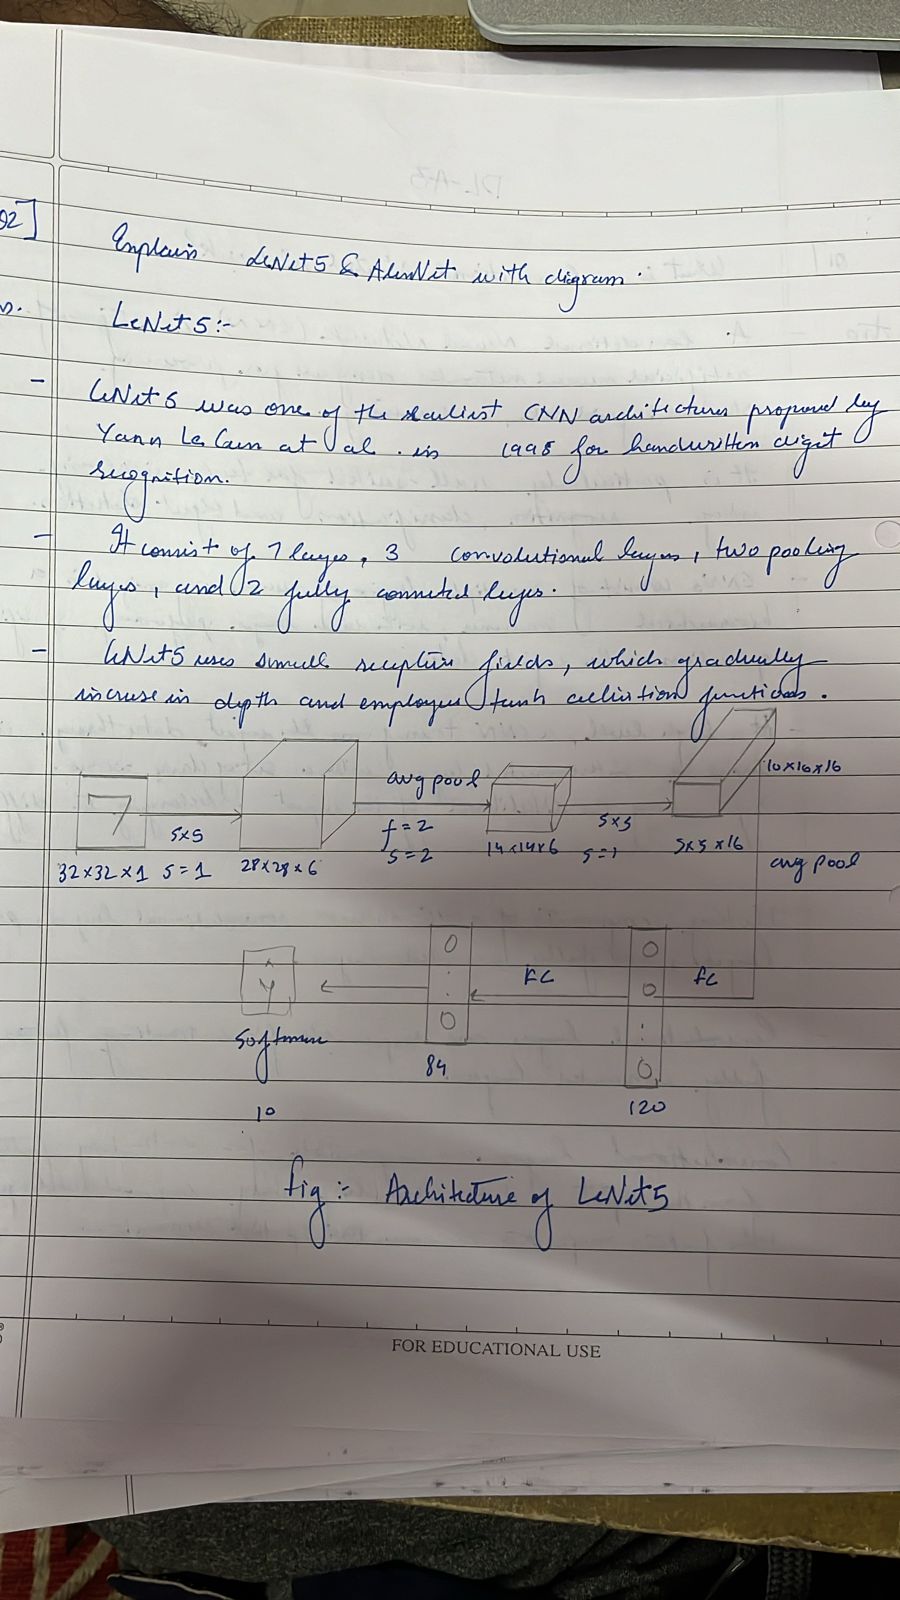 Q2]
Explain LeNet5 & AlexNet with digram.
LeNet5:-
- LeNet5 was one of the earliest CNN architectures proposed by
Yann Le Cun at al. in 1998 for handwritten digit
recognition.
- It consist of 7 layes, 3 convolutional layes, two pooling
layes, and 2 fully connected layes.
- LeNet5 uses small receptive fields, which gradually
increse in depth and employes tanh activation functions.
avg pool
10x10x16
5x5
f=2
5x5
32x32x1 s=1 28x28x6
s=2
14x14x6
s=1
5x5x16
avg pool
FC
fc
Softmax
84
10
120
fig:- Architecture of LeNet5
FOR EDUCATIONAL USE